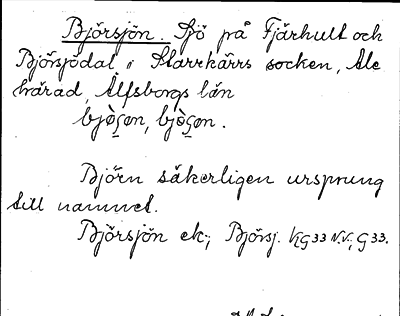 Björsjön. Sjö på Fjärhult och
Björsjödal i Starrkärrs socken, Ale
härad, Älfsborgs län
Björn säkerligen ursprung
till namnet.
Björsjön ek.; Björsj. KG33 N.V.; G 33.